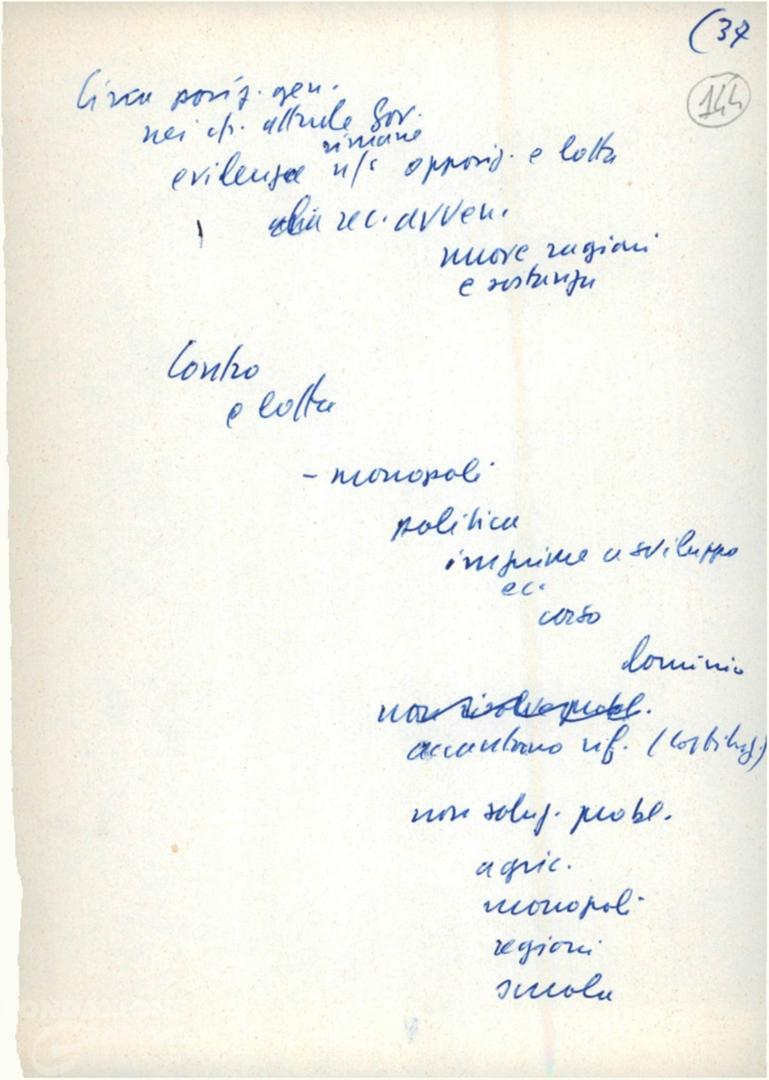 (37
144
Circa posiz. gen.
nei cfr. attuale Gov.
rimane
evidenza n/s opposiz. e lotta
rec. avven.
nuove ragioni
e sostanza
Contro
e lotta
- monopoli
politica
imprime a sviluppo
ec.
corso
dominio
non risolve probl.
accantonano rif. (Costituz.)
non soluz. probl.
agric.
monopoli
regioni
scuola
FONDAZIONE